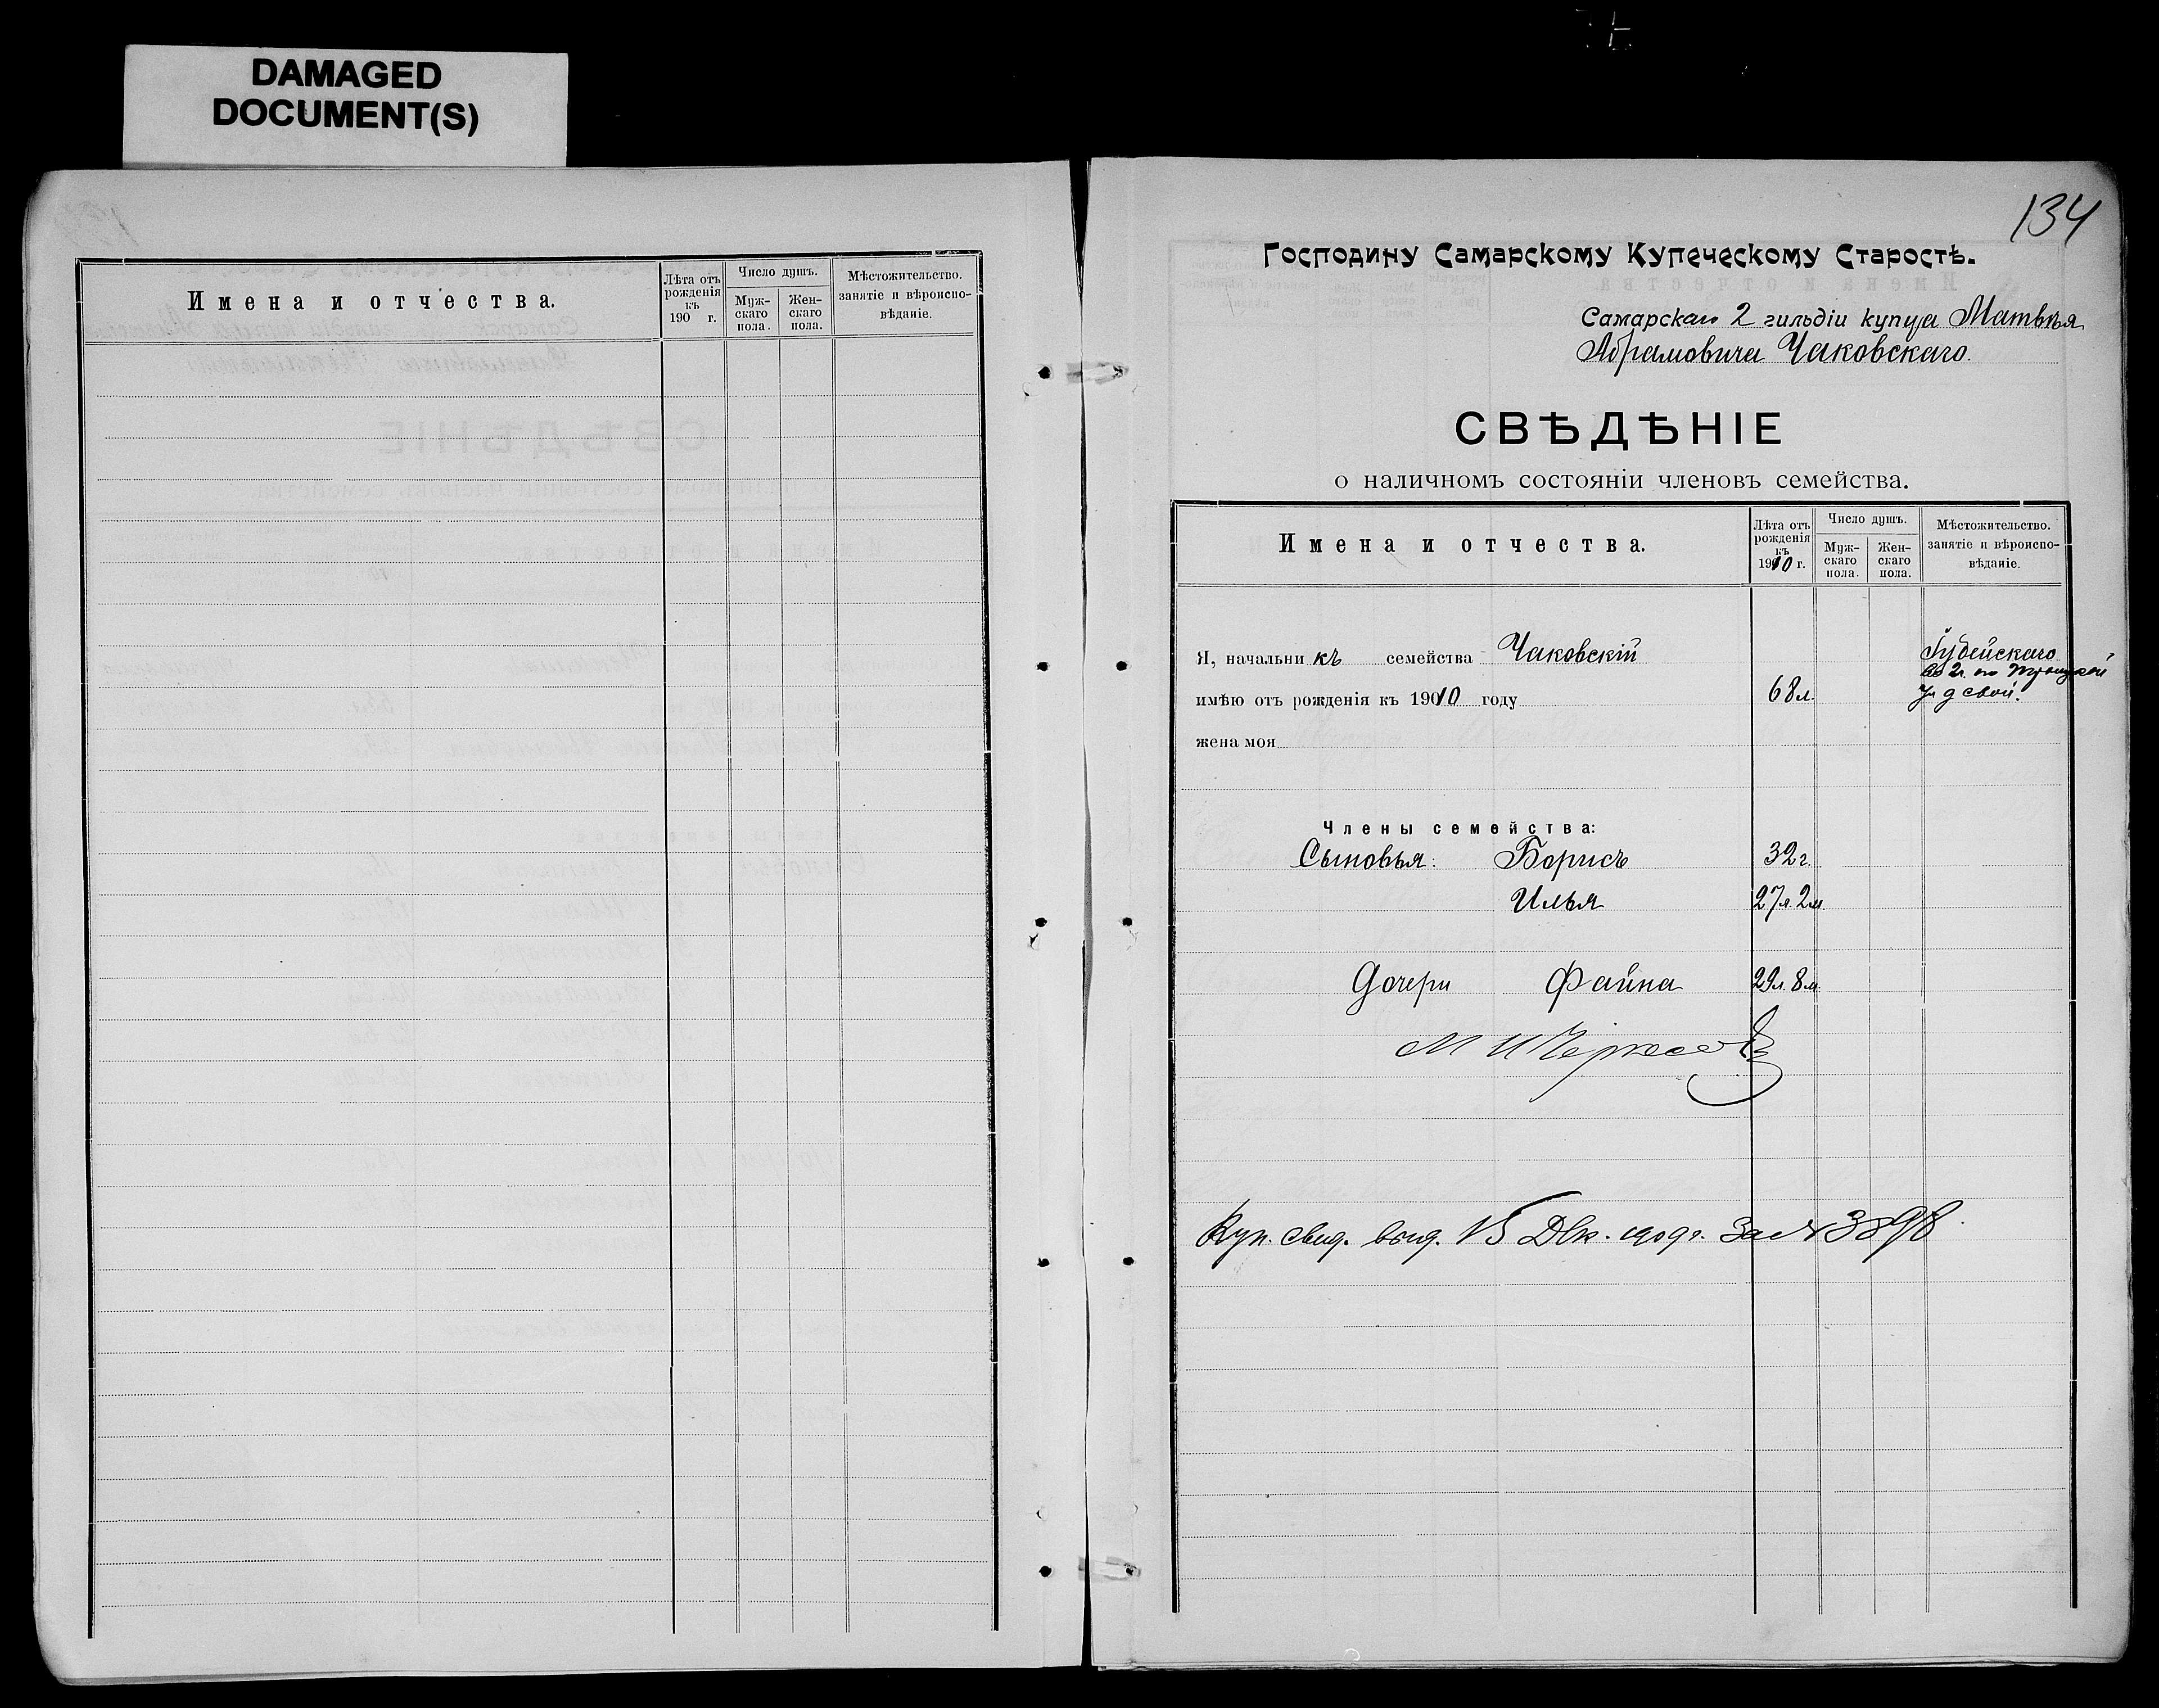 DAMAGED
DOCUMENT(S)
Имена и отчества.
Лѣта отъ рожденія къ 190 г.
Число душъ.
Муж-скаго пола.
Жен-скаго пола.
Мѣстожительство. занятіе и вѣроиспо-вѣданіе.
134
Господину Самарскому Купеческому Старостѣ.
Самарскаго 2 гильдіи купца Матвѣя
Абрамовича Чаковскаго.
СВѢДѢНІЕ
о наличномъ состояніи членовъ семейства.
Имена и отчества.
Лѣта отъ рожденія къ 1910 г.
Число душъ.
Муж-скаго пола.
Жен-скаго пола.
Мѣстожительство. занятіе и вѣроиспо-вѣданіе.
Я, начальникъ семейства Чаковскій Іудейскаго
во 2ч. по Троицкой
имѣю отъ рожденія къ 1910 году 68 л. ул д свой.
жена моя
Члены семейства:
Сыновья: Борисъ 32 г.
Илья 27 л. 2 м.
Дочери Файна 29 л. 8 м.
Куп. свид. выд. 15 Дек. 1909 г. за № 3898